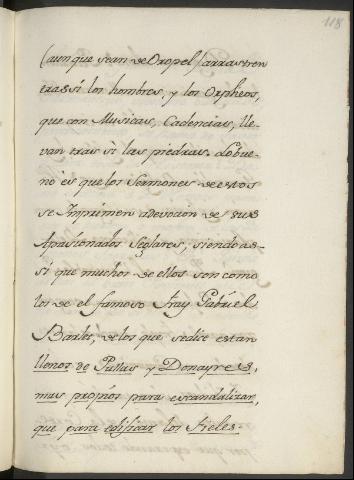 118
(aunque sean de Oropel) arrastren
tras si los hombres, y los Orpheos,
que con Musicas, Cadencias, lle-
van tras si las piedras. Lo bue-
no es que los Sermones de estos
se Imprimen a devocion de sus
Apasionados Seglares, siendo as-
si que muchos de ellos son como
los de el famoso Fray Gabriel
Barles, de los que se dice estan
llenos de Pullas y Donayres,
mas propios para escandalizar,
que para edificar los Fieles.